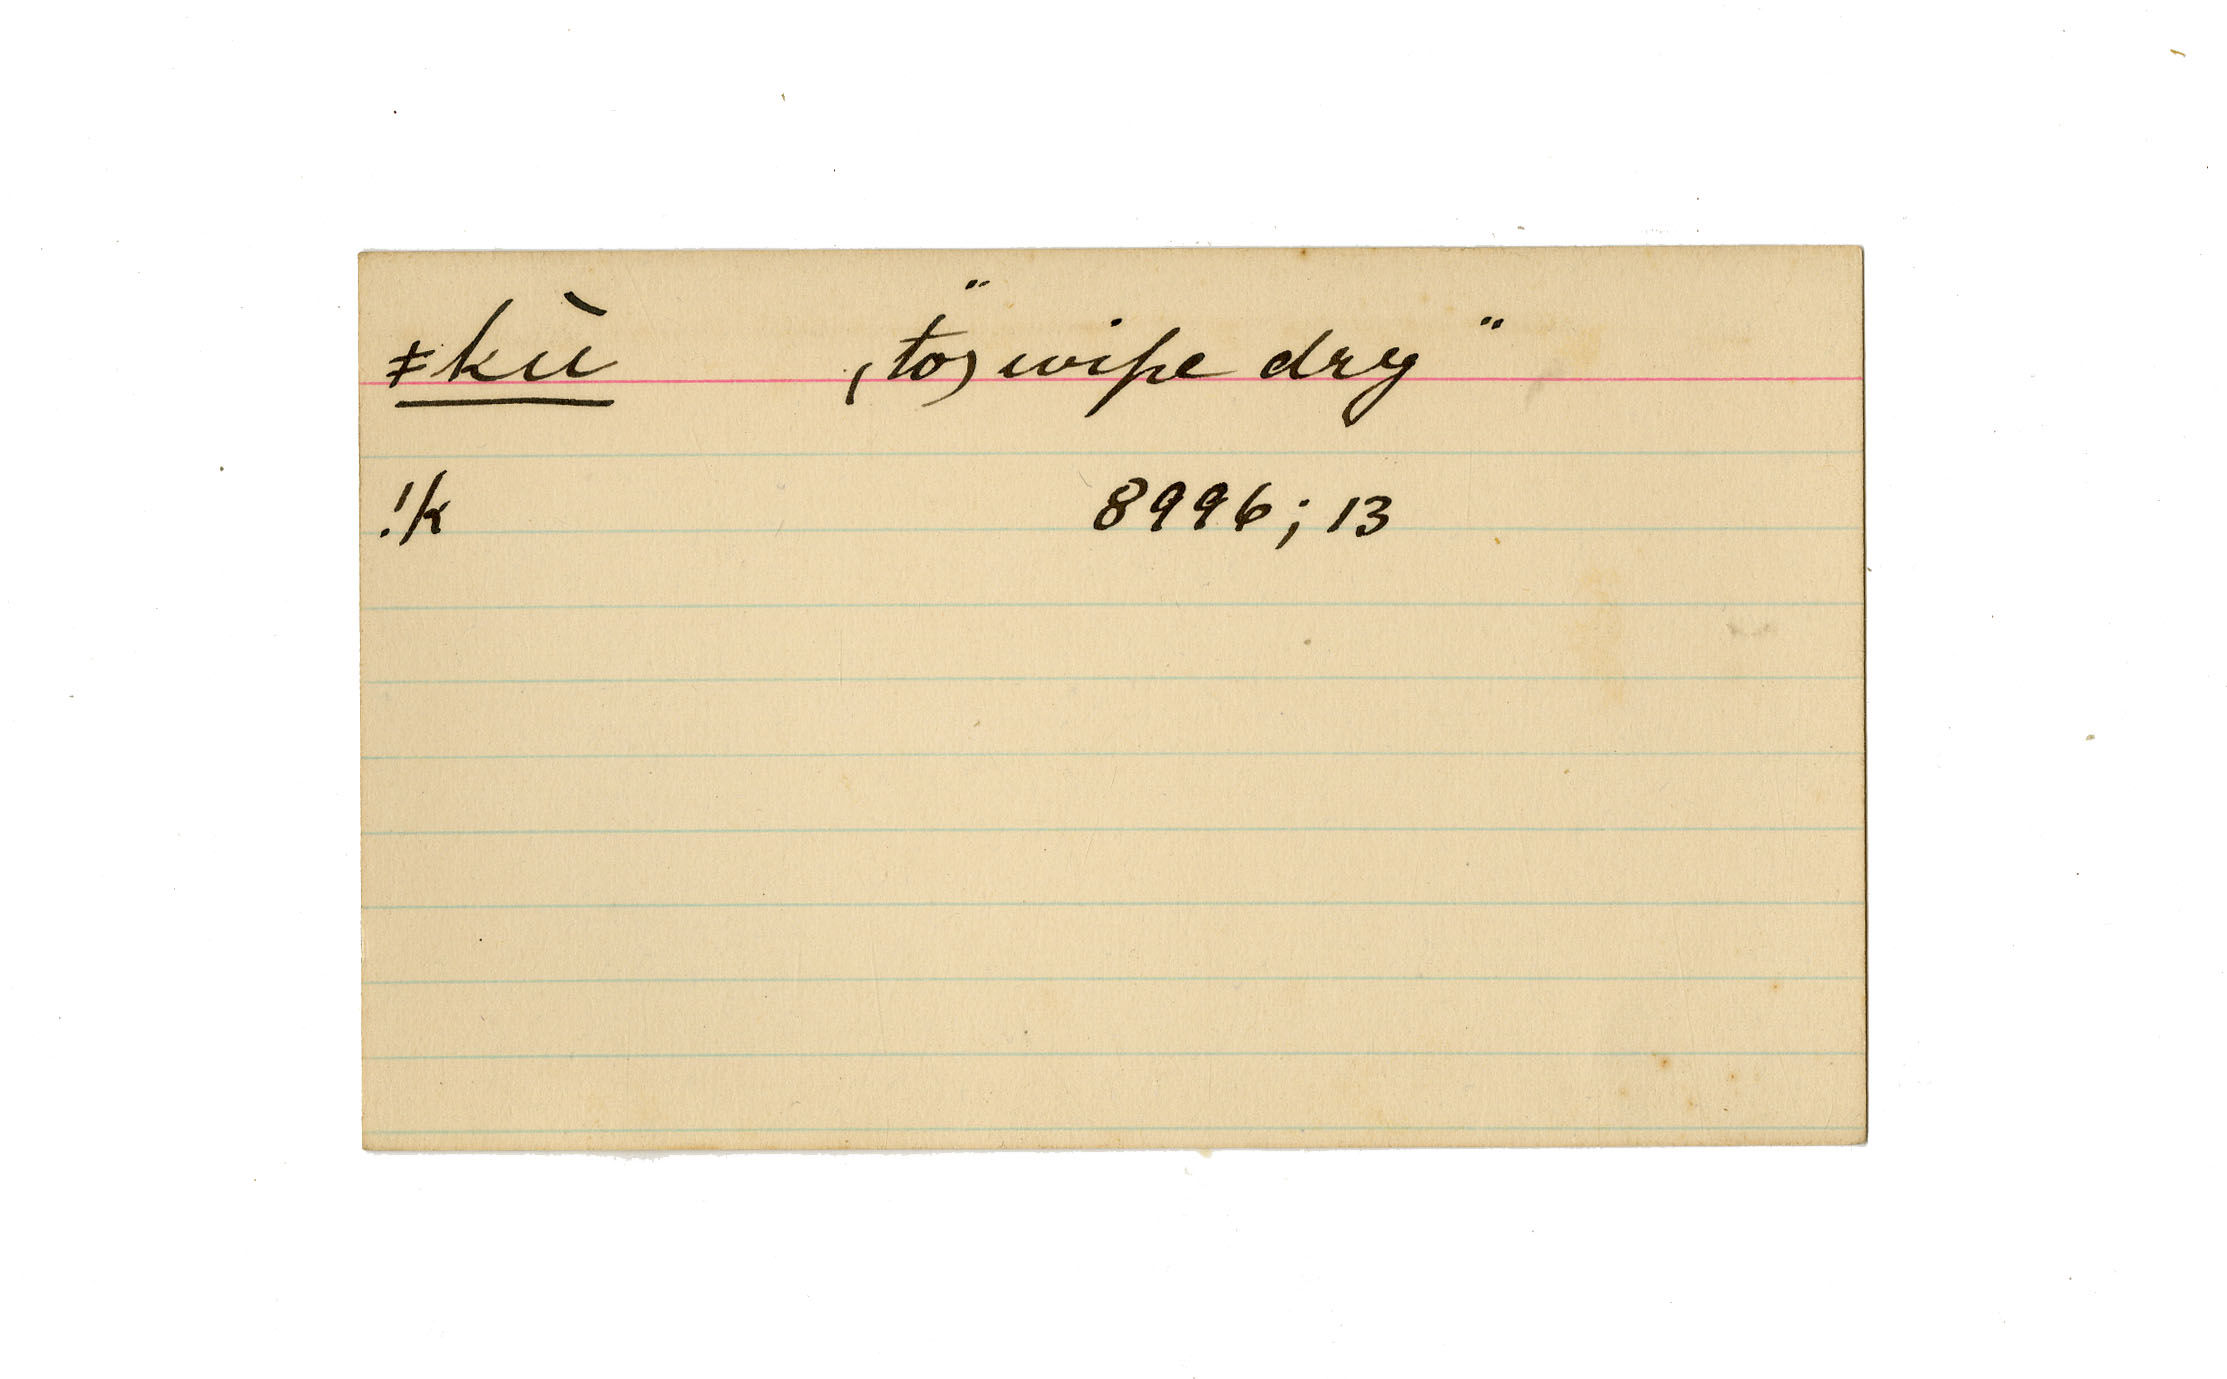 ǂkù (to) "wipe dry"
!k 8996; 13